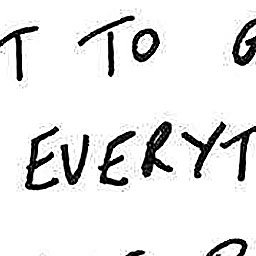 T TO G
EVERYT